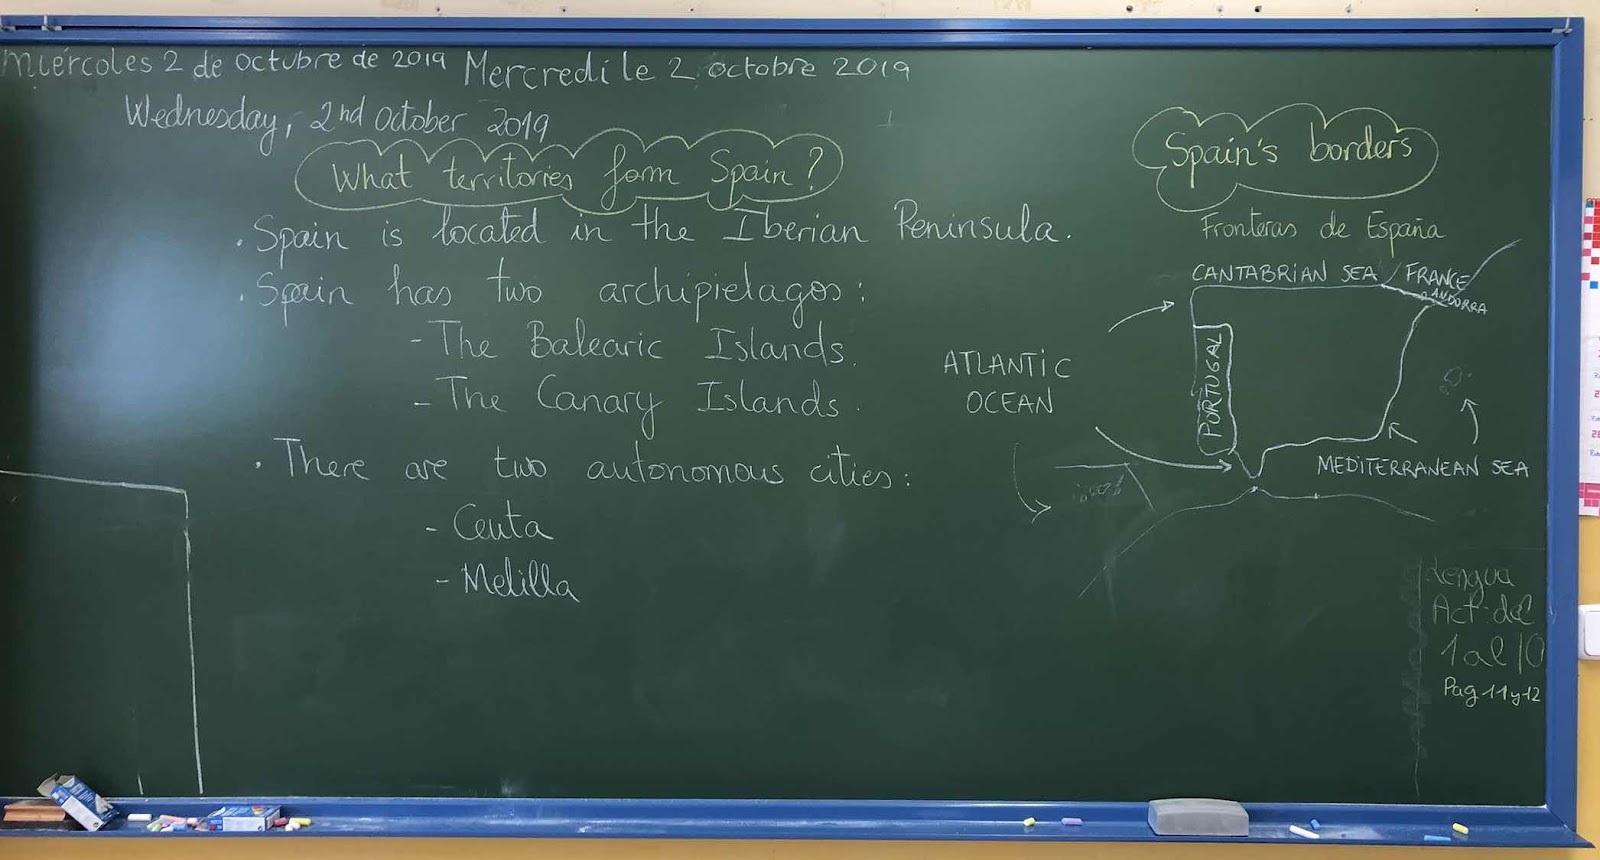 Miércoles 2 de octubre de 2019 Mercredi le 2 octobre 2019
Wednesday, 2nd October 2019
What territories form Spain?
. Spain is located in the Iberian Peninsula.
. Spain has two archipielagos:
- The Balearic Islands.
- The Canary Islands.
. There are two autonomous cities:
- Ceuta
- Melilla
Spain's borders
Fronteras de España
CANTABRIAN SEA FRANCE
ANDORRA
PORTUGAL
ATLANTIC
OCEAN
MEDITERRANEAN SEA
Lengua
Act: del
1 al 10
Pag 11 y 12